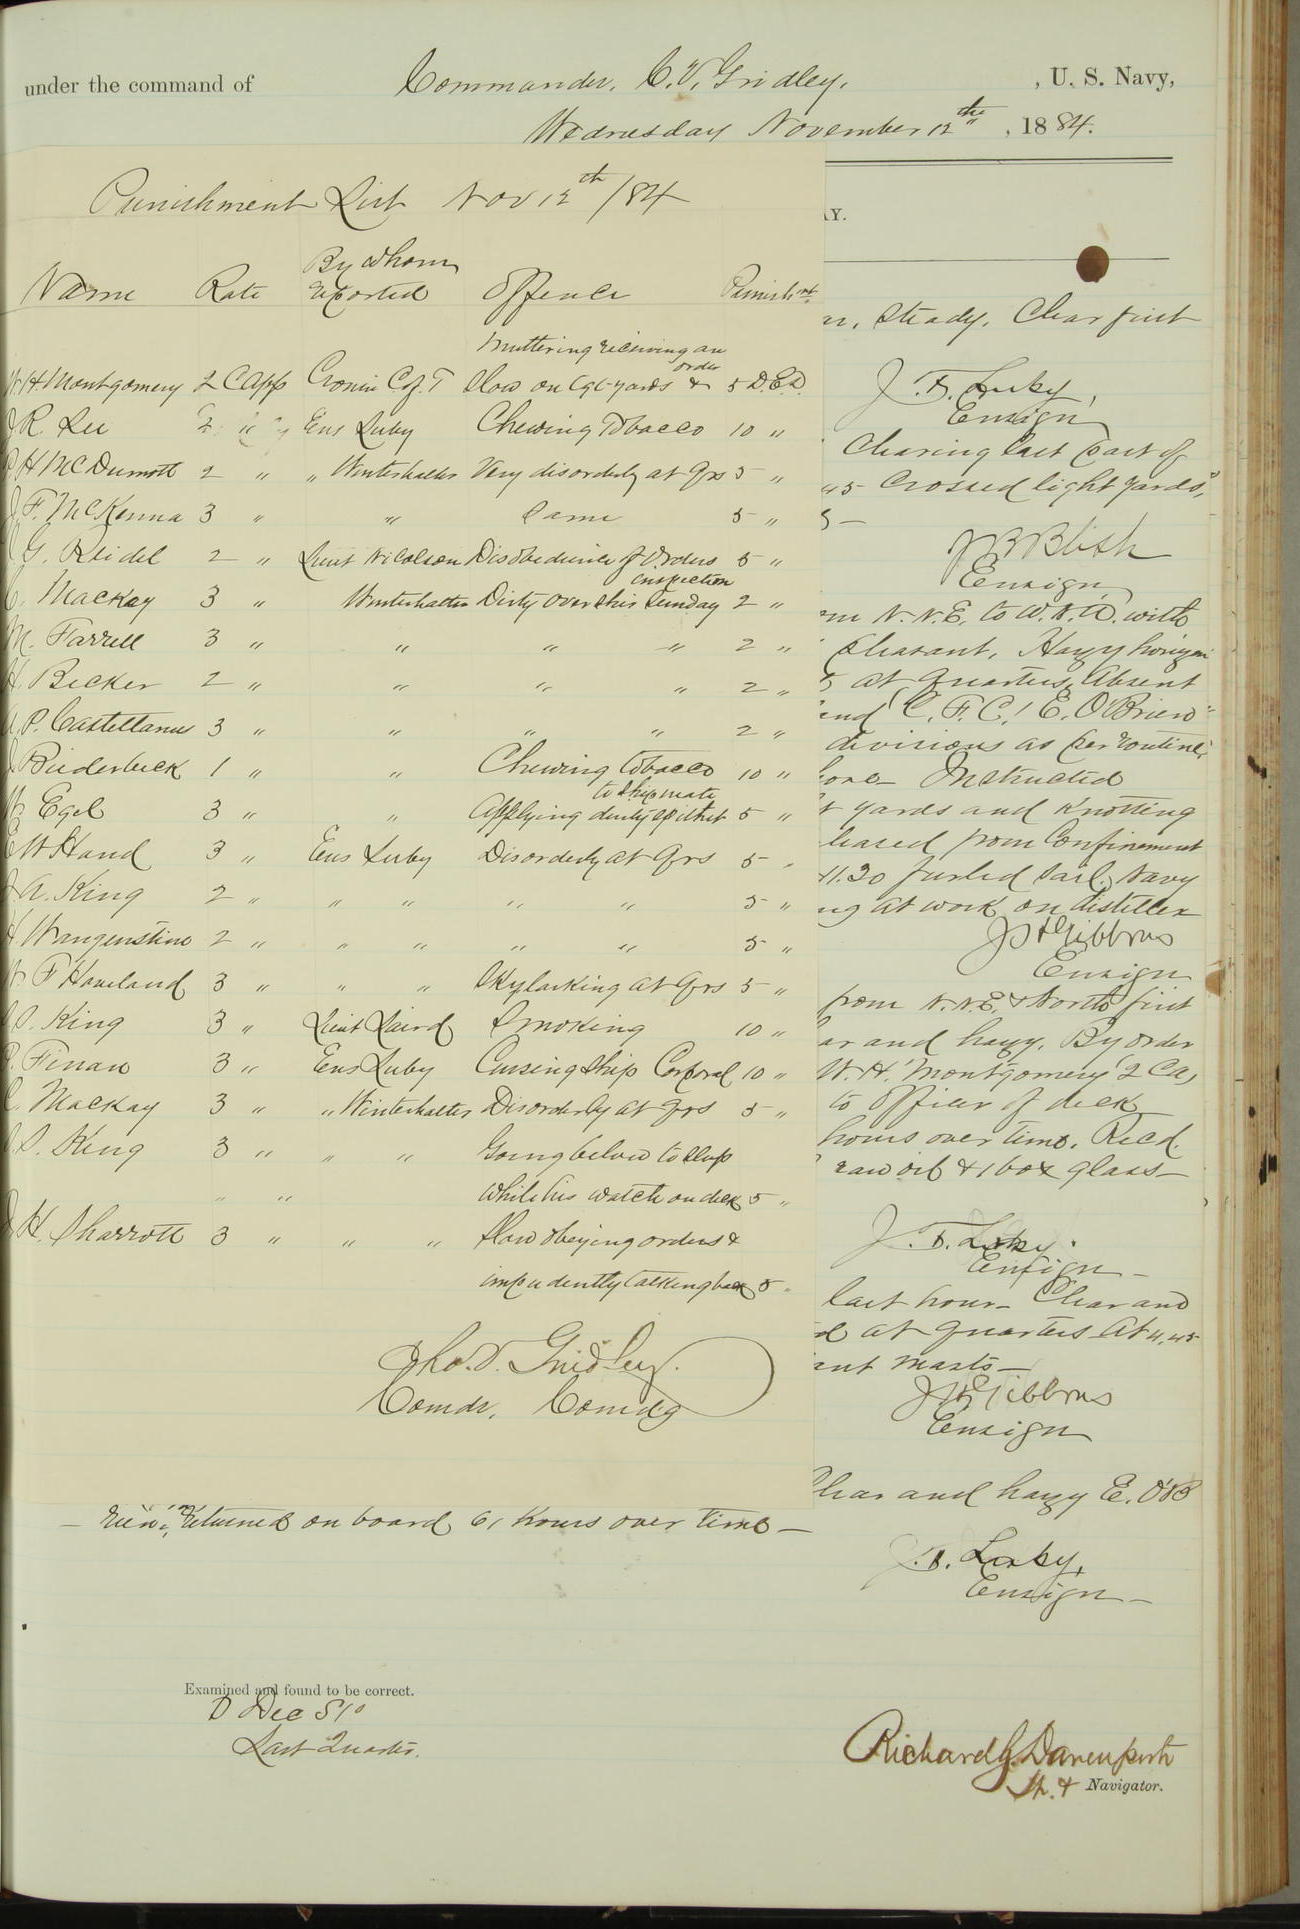 under the command of Commander, C. V. Gridley. , U. S. Navy,
Wednesday November 12th , 1884.
AY.
Punishment List Nov 12th /84
Name Rate By Whom reported Offence Punishmt
Muttering receiving an order
W. H Montgomery 2 C App Cronin Cof. T Slow on L gt yards & 5 D.E.D.
J R. Lee 2 " Ens Luby Chewing Tobacco 10 "
P H McDurmott 2 " " Winterhalter Very disorderly at Qrs 5 "
J F. McKenna 3 " " Same 5 "
G. Reidel 2 " Lieut Nicolson Disobedience of Orders 5 "
inspection
C. Mackay 3 " Winterhalter Dirty over this Sunday 2 "
M. Farrell 3 " " " " 2 "
H. Becker 2 " " " " 2 "
A. P. Castellanus 3 " " " " 2 "
J Biederbeck 1 " " Chewing Tobacco 10 "
to Shipmate
W Egel 3 " " Applying dirty epithet 5 "
E W Hand 3 " Ens Luby Disorderly at Qrs 5 "
J A. King 2 " " " " " 5 "
H. Wangenstine 2 " " " " " 5 "
W. F Haveland 3 " " " Skylarking at Qrs 5 "
J S. King 3 " Lieut Laird Smoking 10 "
P. Finan 3 " Ens Luby Cursing Ship Corporal 10 "
C. Mackay 3 " " Winterhalter Disorderly at Qrs 5 "
J. S. King 3 " " " Going below to sleep
" " while his watch on deck 5 "
H. Sharrott 3 " " " Slow obeying orders &
impudently talking back 5 "
Chs. V. Gridley.
Comdr, Comdg
ar, steady. Clear first
J. F. Luby,
Ensign
Clearing last part of
45 Crossed light yards,
5 —
J B Blish
Ensign
om N. N. E. to W. N. W. with
pleasant. Hazy horizon
5 at quarters, Absent
and C. F. C.! E. O'Brien
divisions as per routine.
fore— Instructed
t yards and Knotting
leased from Confinement
11.20 furled sail. Navy
ng at work on distiller
J H Gibbons
Ensign
from N. N. E. & North first
ar and hazy. By order
W. H. Montgomery 2 CA,
to officer of deck
hours over time. Recd.
raw oil & 1 box glass—
J. F. Luby.
Ensign—
last hour— Clear and
d at quarters at 4.45
ant masts—
J H Gibbons
Ensign
Clear and hazy E. O'B
— rien; returned on board 61 hours over time —
J. F. Luby,
Ensign—
Examined and found to be correct.
D Dec S 1°
Last Quarter.
Richard G. Davenport
Lt. & Navigator.